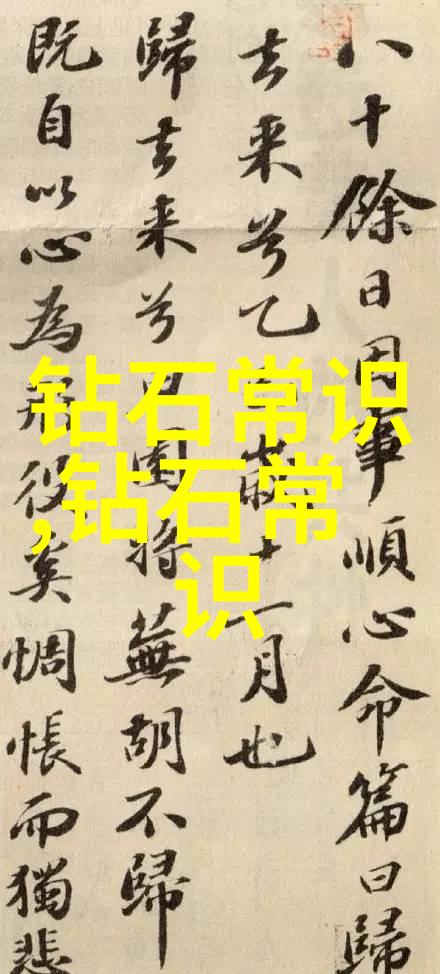 八十餘日因事順心命篇曰歸
去来兮乙巳歲十一月也
歸去来兮田園将蕪胡不歸
既自以心為形役奚惆悵而獨悲
钻石常识
,钻石常
识